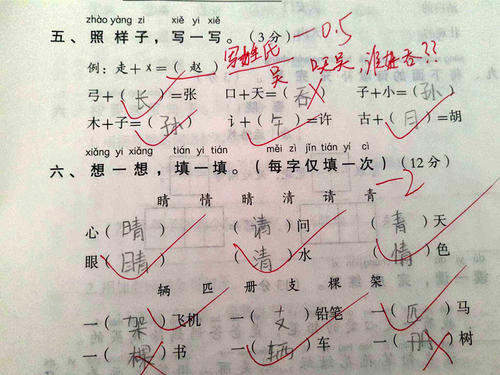 zhào yàng zi xiě yi xiě
五、照样子，写一写。(3分) -0.5
例：走+㐅=(赵) 写姓氏 吴 口天吴，谁姓否??
弓+(长)=张 口+天=(否) 子+小=(孙)
木+子=(孙) 讠+(午)=许 古+(月)=胡
xiǎng yi xiǎng tián yi tián měi zì jǐn tián yí cì
六、想一想，填一填。(每字仅填一次)(12分)
睛 情 晴 清 请 青 -2
心(晴) (请)问 (青)天
眼(睛) (清)水 (情)色
辆 匹 册 支 棵 架
一(架)飞机 一(支)铅笔 一(匹)马
一(棵)书 一(辆)车 一(册)树